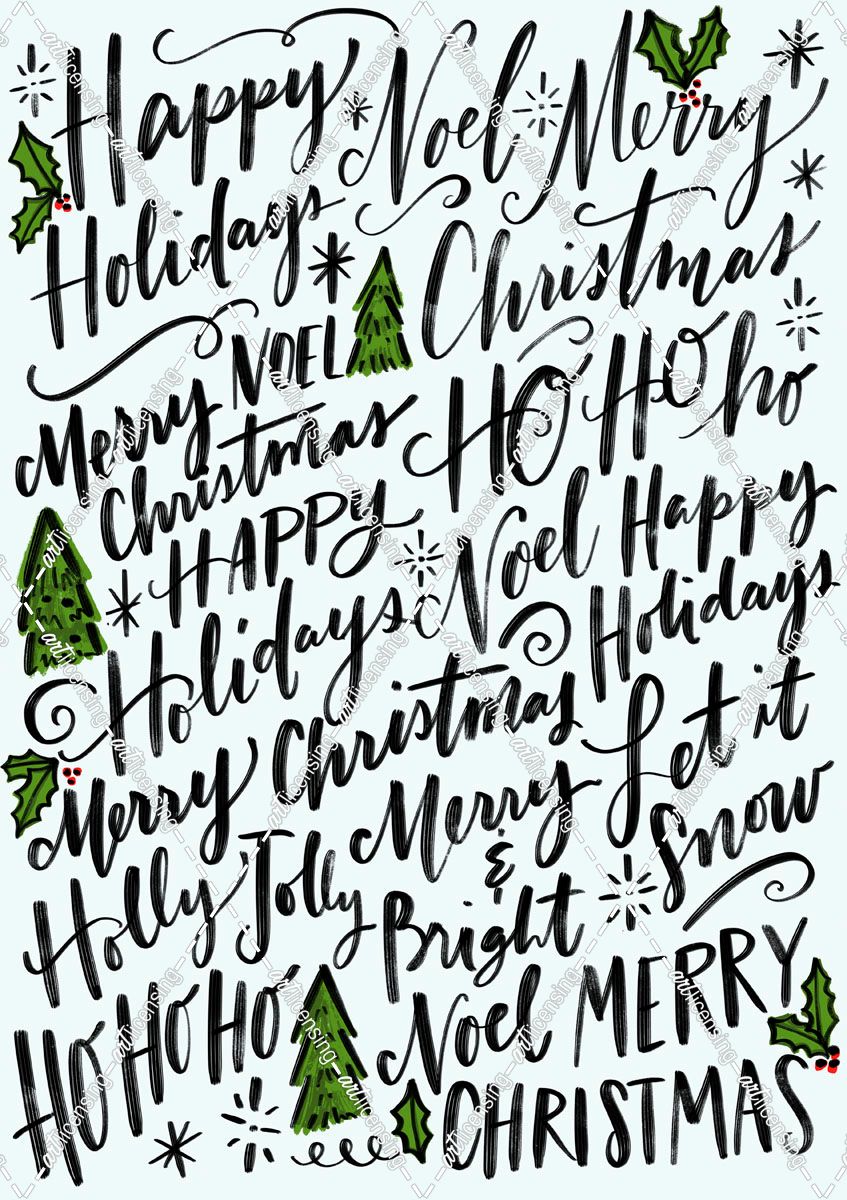 Happy Noel Merry
Holidays Christmas
NOEL
Merry HO HO ho
Christmas
HAPPY Noel Happy
Holidays Holidays
Merry Christmas Let it
Merry & Bright Snow
Holly Jolly
HO HO HO Noel MERRY
CHRISTMAS
artlicensing